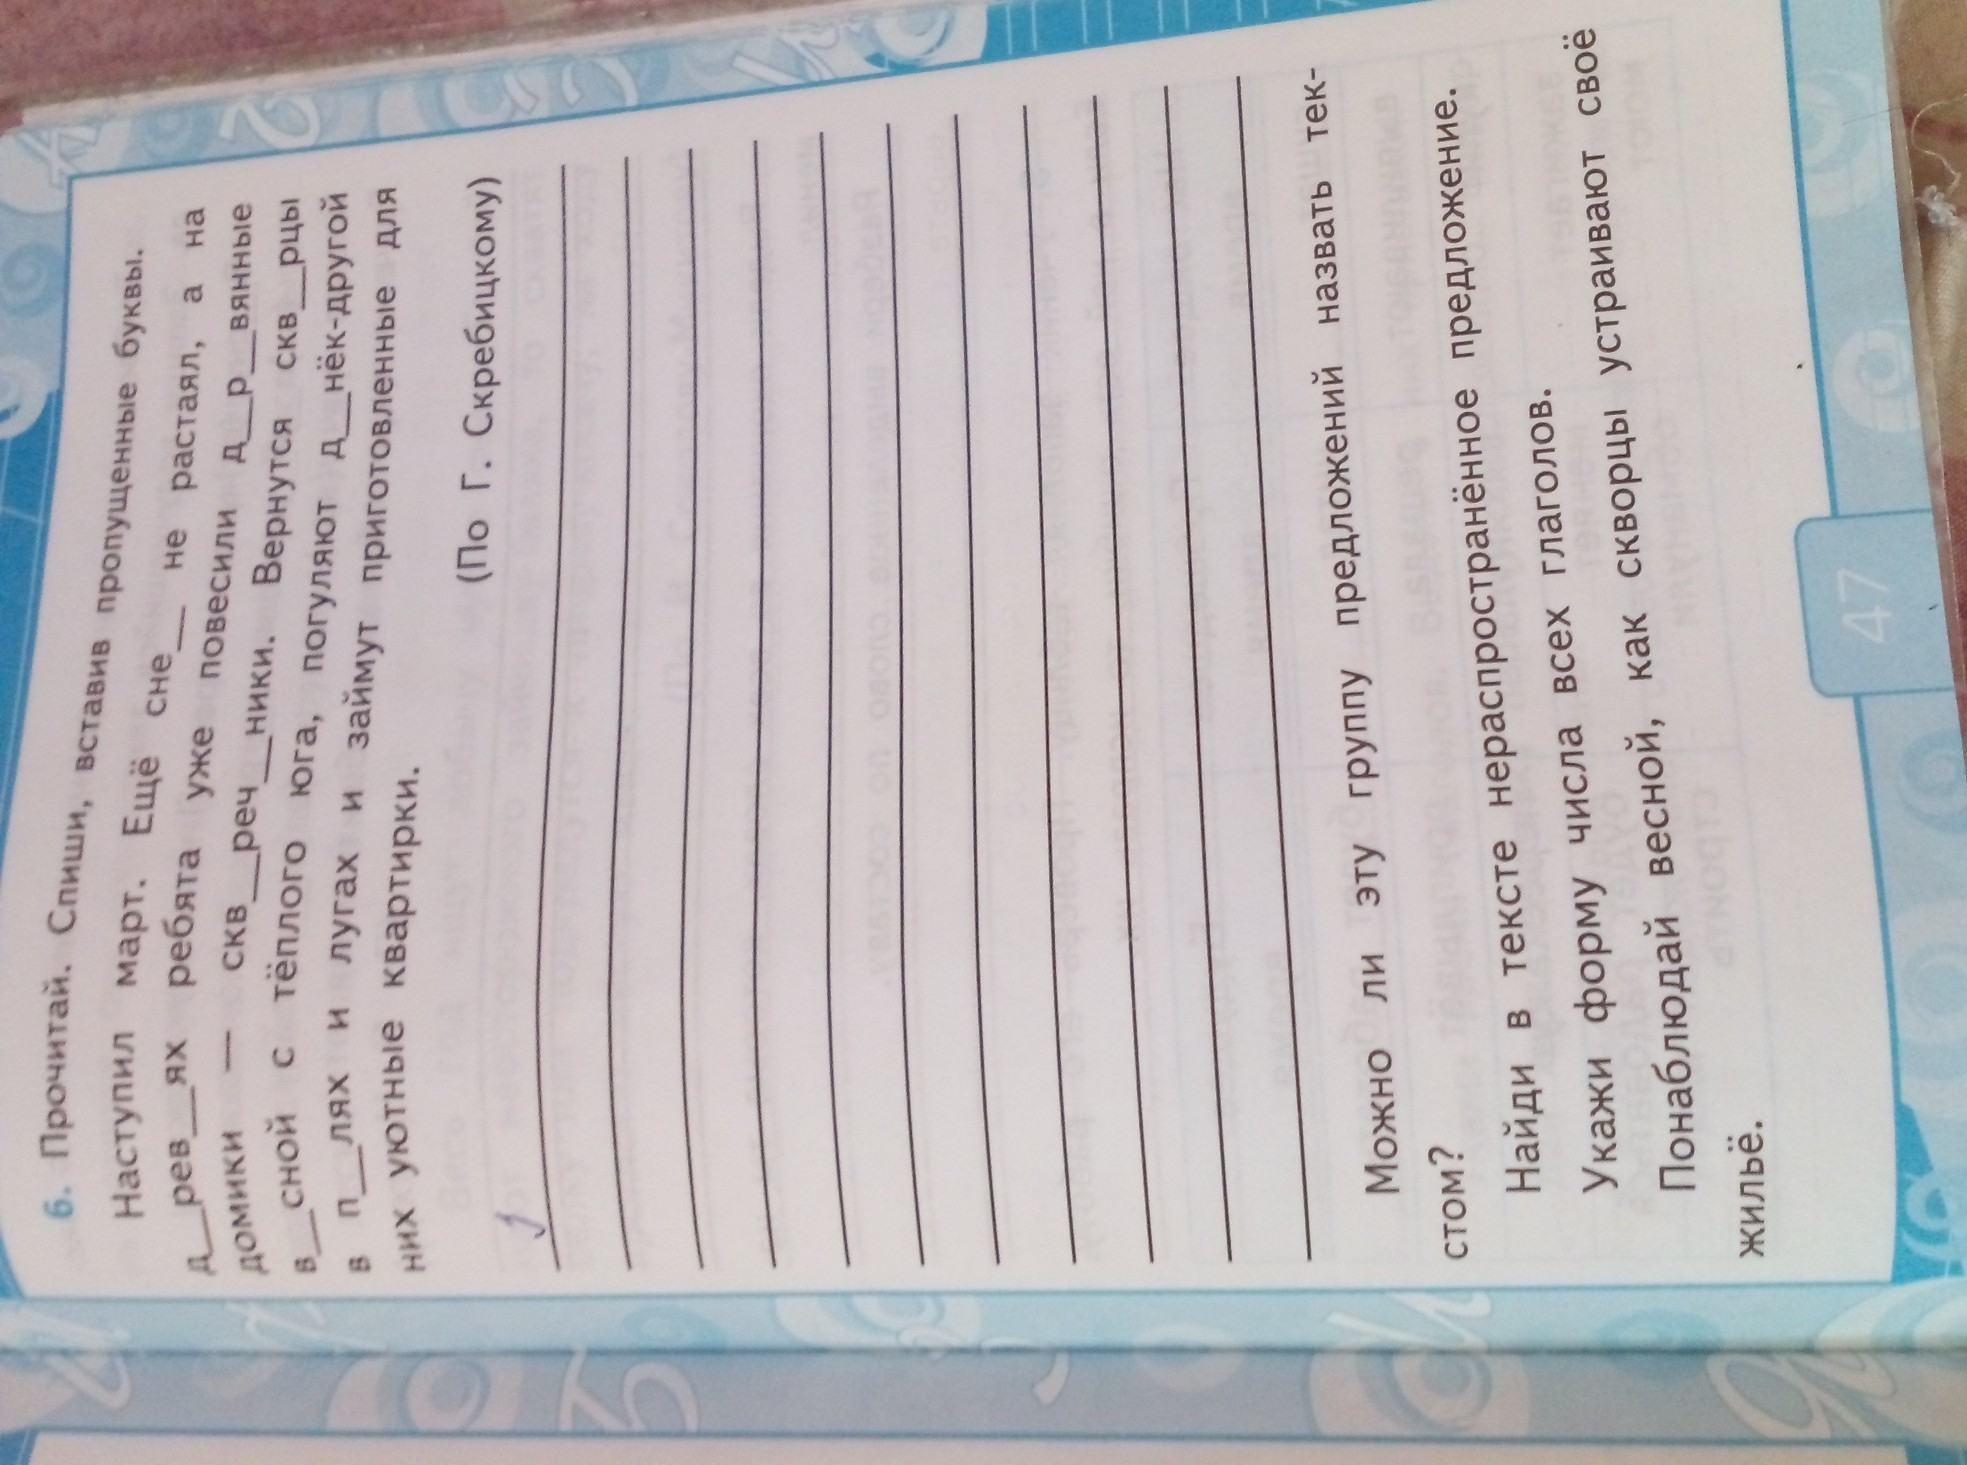 6. Прочитай. Спиши, вставив пропущенные буквы.
Наступил март. Ещё сне__ не растаял, а на
д__рев__ях ребята уже повесили д__р__вянные
домики — скв__реч__ники. Вернутся скв__рцы
в__сной с тёплого юга, погуляют д__нёк-другой
в п__лях и лугах и займут приготовленные для
них уютные квартирки.
(По Г. Скребицкому)
Можно ли эту группу предложений назвать тек-
стом?
Найди в тексте нераспространённое предложение.
Укажи форму числа всех глаголов.
Понаблюдай весной, как скворцы устраивают своё
жильё.
47